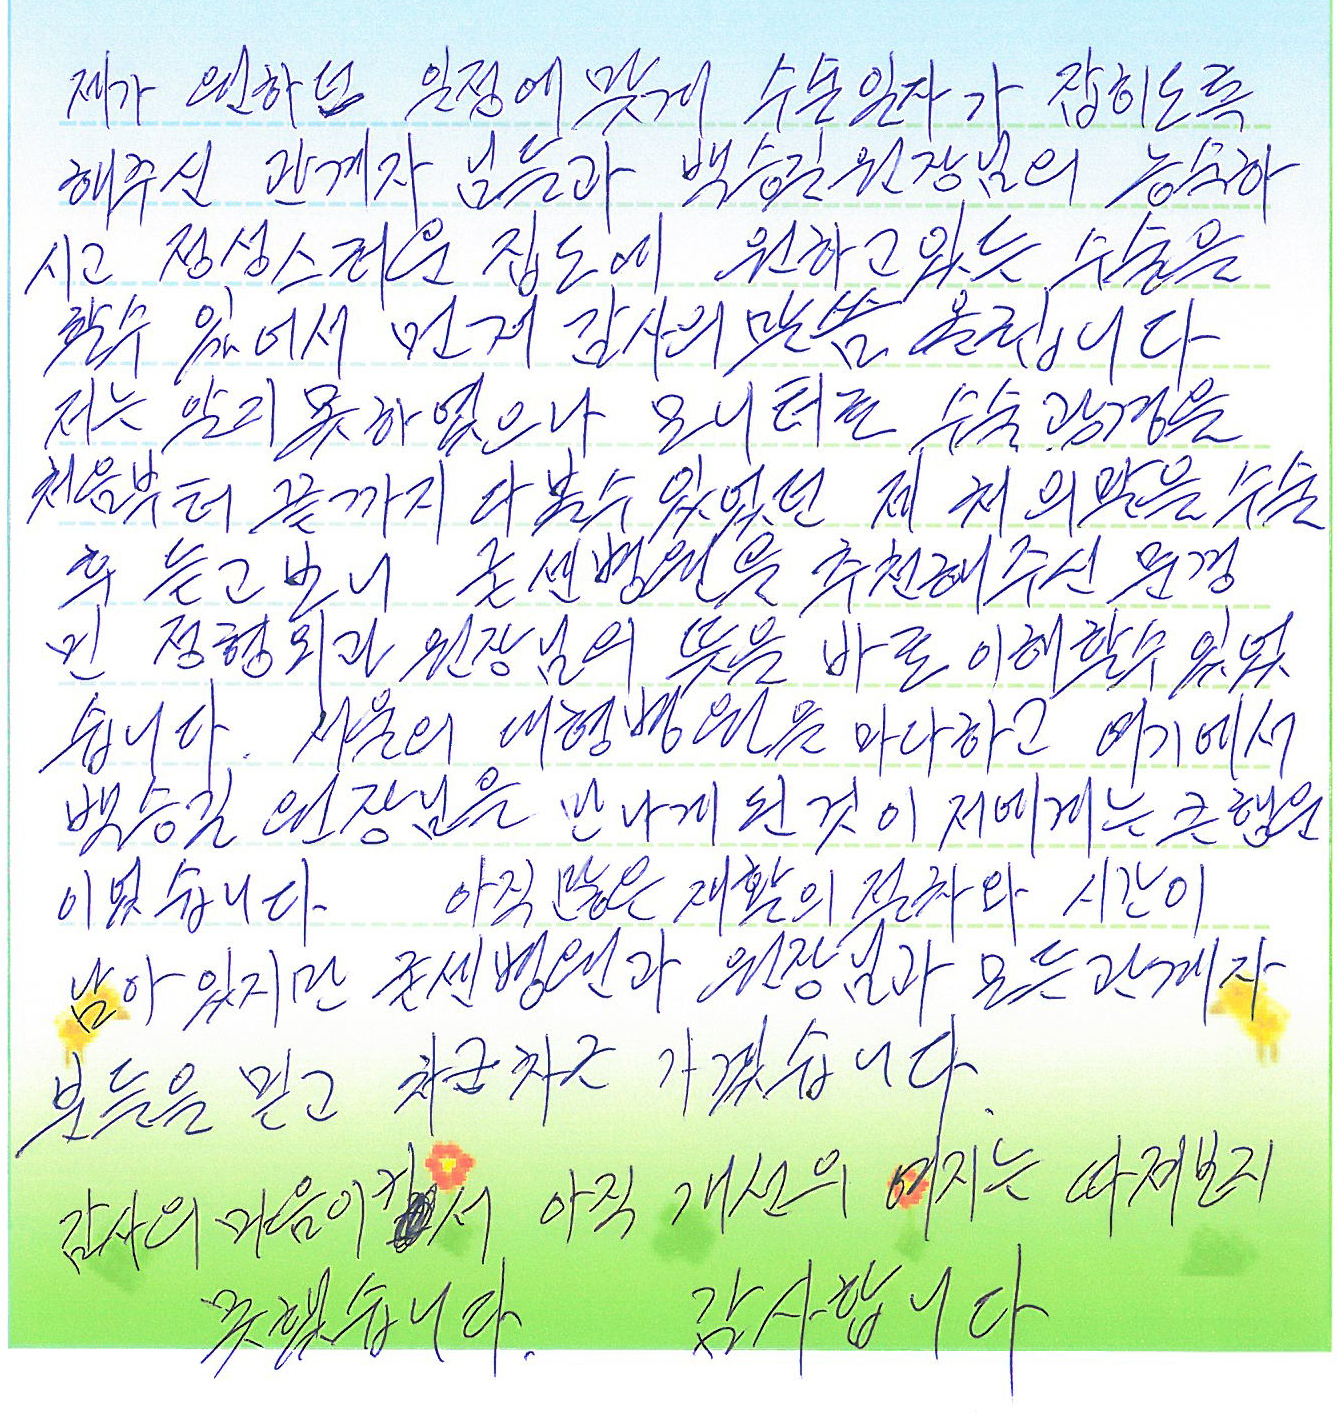 제가 원하던 일정에 맞게 수술일자가 잡히도록
해주신 관계자 님들과 백승길원장님의 능숙하
시고 정성스러운 집도에 원하고 있는 수술을
할수 있어서 먼저 감사의 말씀 올립니다
저는 알지 못하였으나 모니터로 수술 광경을
처음부터 끝까지 다 볼수 있었던 제 처의 말을 수술
후 듣고 보니 굳센병원을 추천해주신 문경
민 정형외과 원장님의 뜻을 바로 이해할수 있었
습니다. 서울의 대형병원을 마다하고 여기에서
백승길 원장님을 만나게 된것이 저에게는 큰 행운
이었습니다. 아직 많은 재활의 절차와 시간이
남아 있지만 굳센병원과 원장님과 모든 관계자
분들을 믿고 차근차근 가겠습니다.
감사의 마음이 커서 아직 개선의 여지는 따져보지
못했습니다. 감사합니다